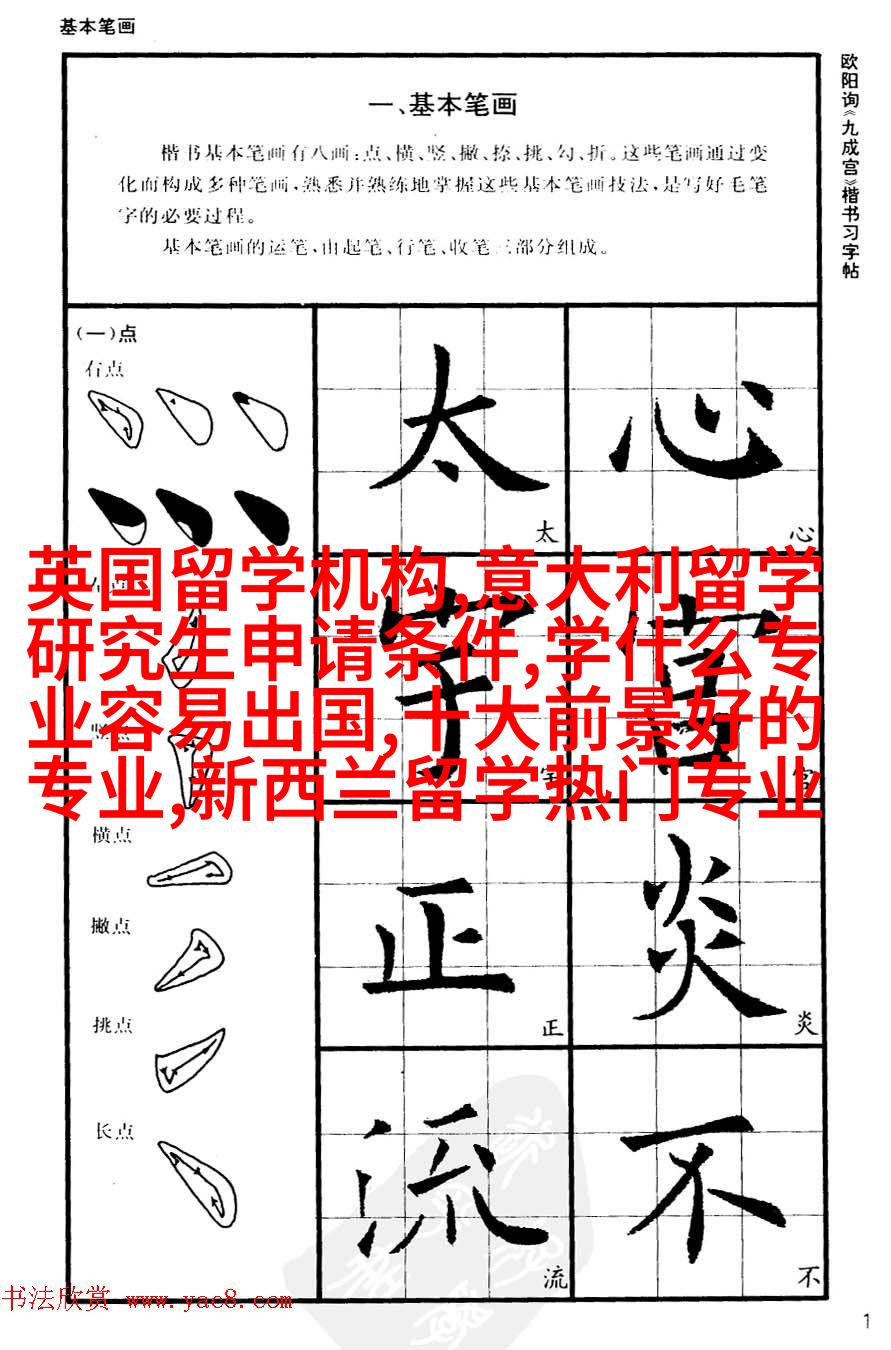 基本笔画
欧阳询《九成宫》楷书习字帖
一、基本笔画
楷书基本笔画有八画：点、横、竖、撇、捺、挑、勾、折。这些笔画通过变
化而构成多种笔画，熟悉并熟练地掌握这些基本笔画技法，是写好毛笔
字的必要过程。
基本笔画的运笔，由起笔、行笔、收笔三部分组成。
(一)点
右点
太 心
太 心
英国留学机构,意大利留学
研究生申请条件,学什么专
业容易出国,十大前景好的
专业,新西兰留学热门专业
竖点
字 宫
字 宫
横点
撇点
正 炎
正 炎
挑点
长点
流 不
流 不
书法欣赏 www.yac8.com
1